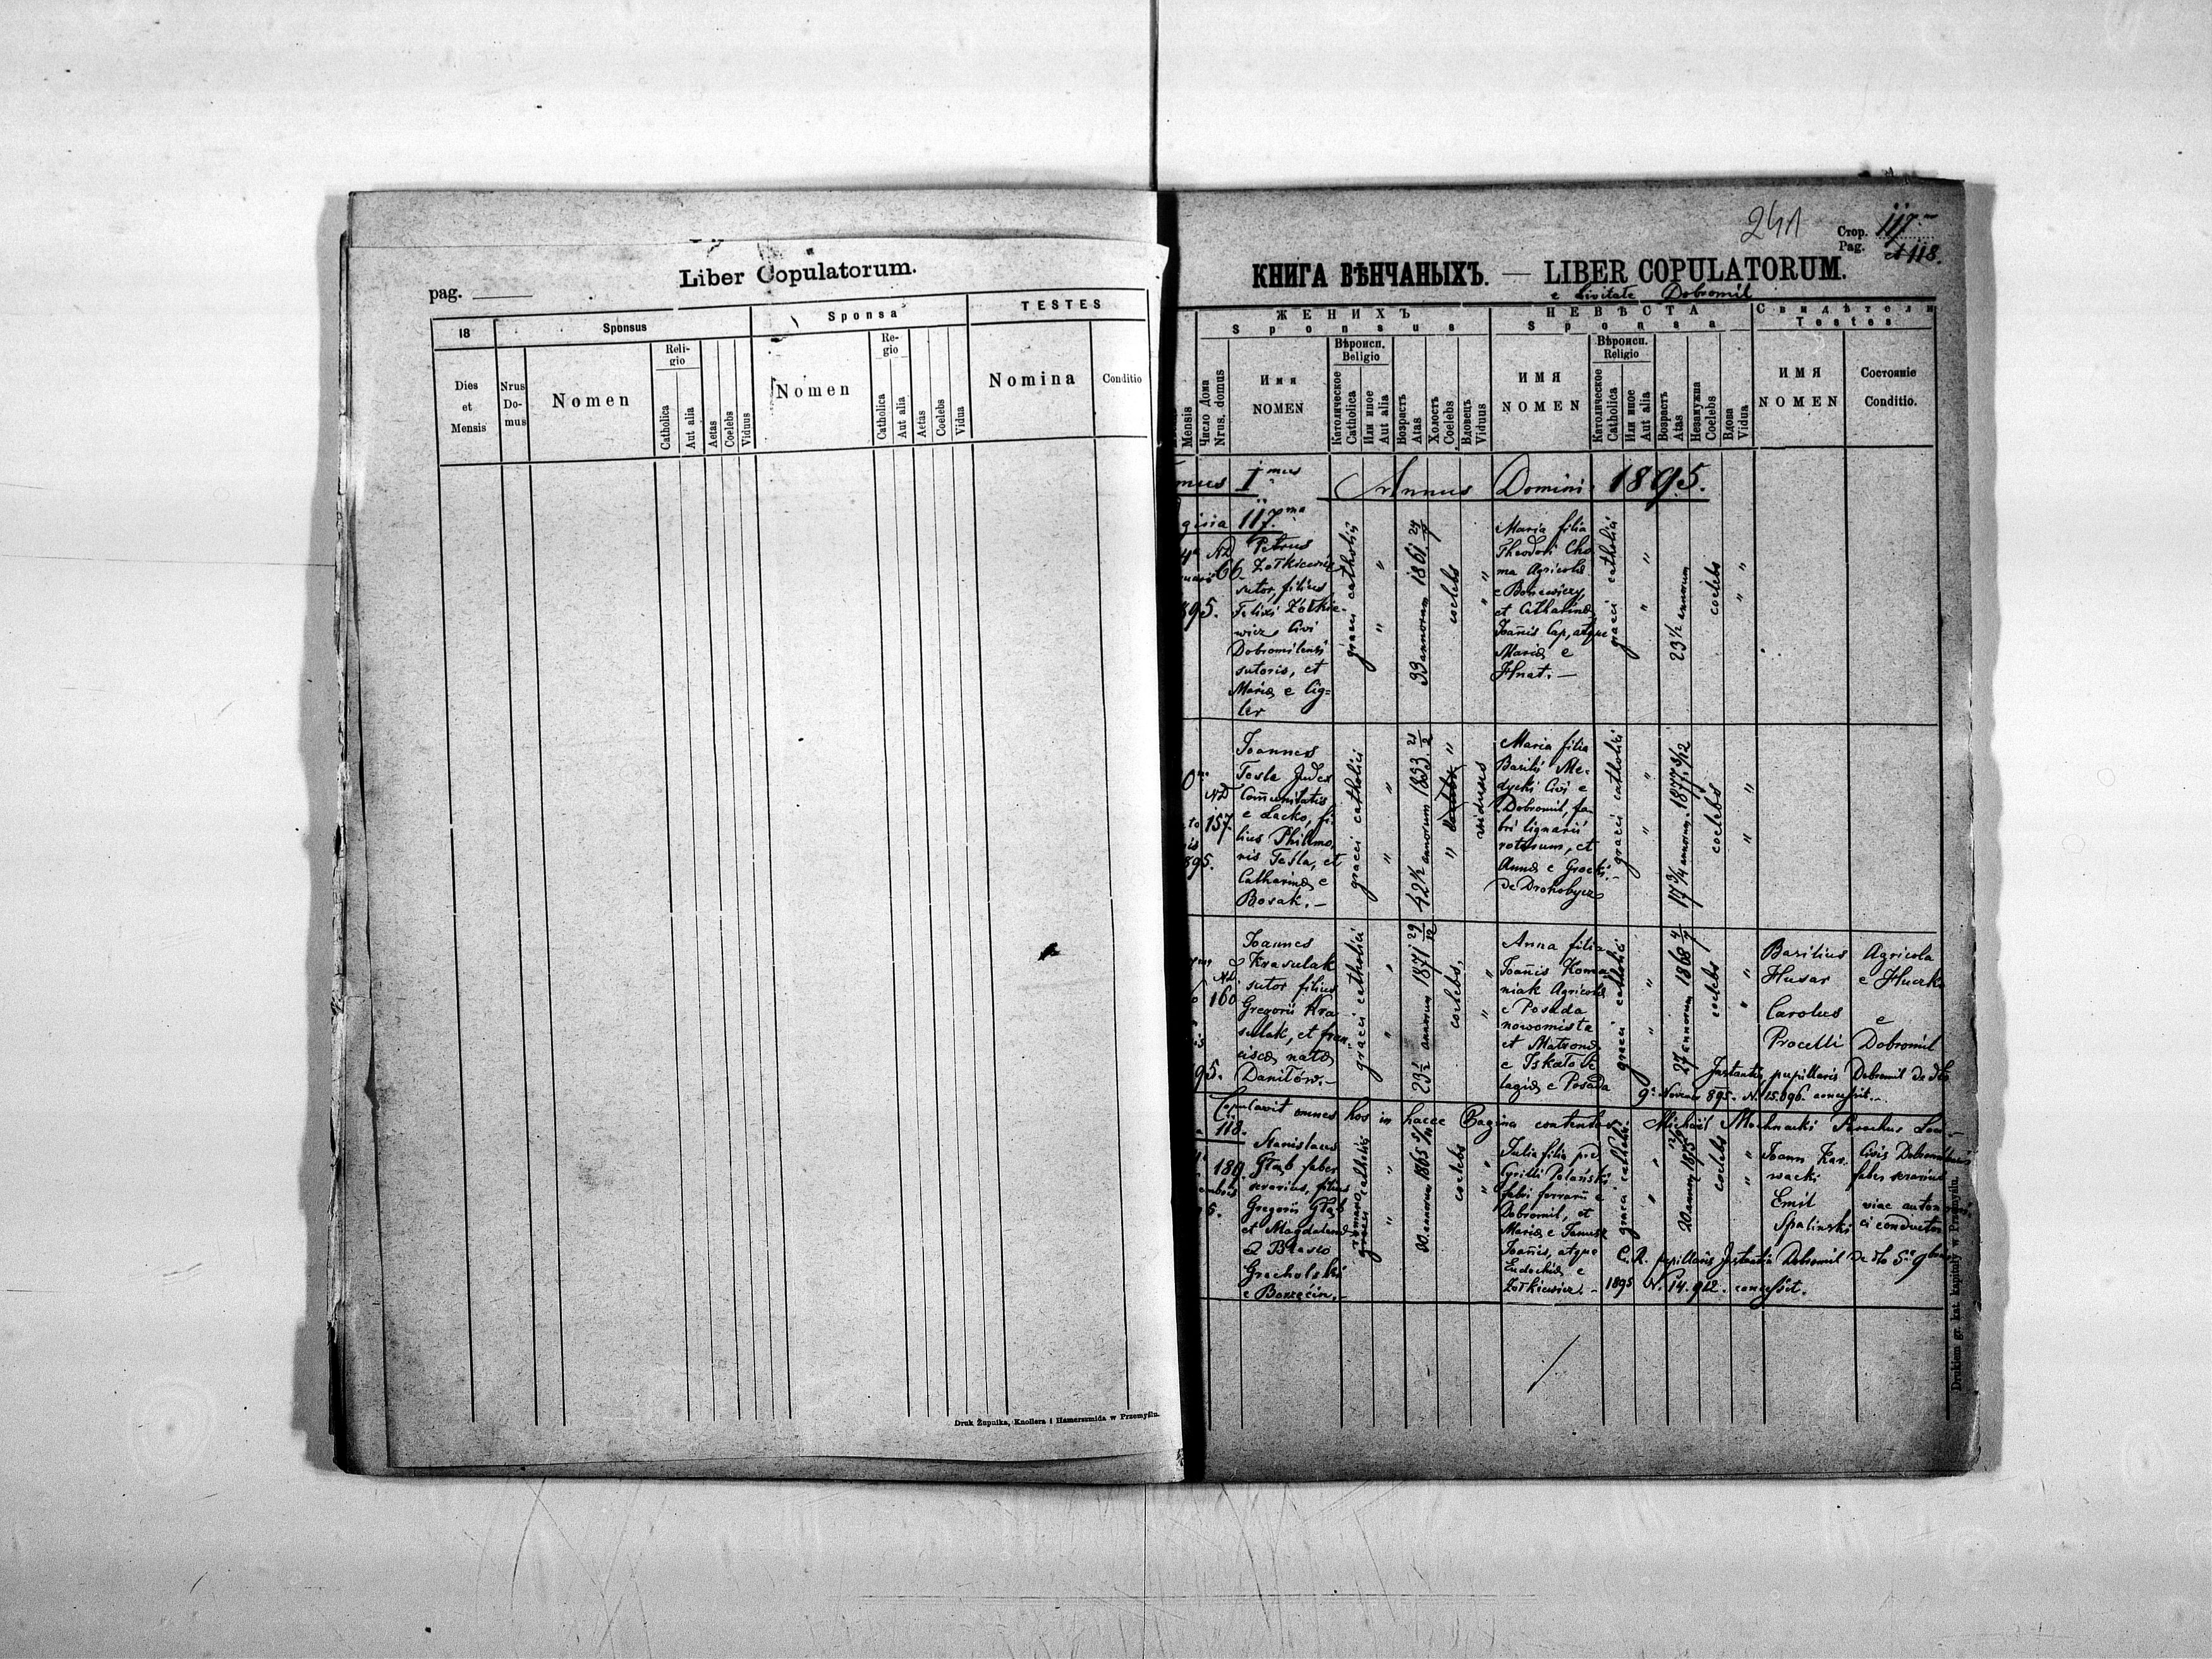 Liber Copulatorum.
pag.
18
Sponsus
Sponsa
TESTES
Dies et Mensis
Nrus Do- mus
Nomen
Reli- gio
Catholica
Aut alia
Aetas
Coelebs
Viduus
Nomen
Re- gio
Catholica
Aut alia
Aetas
Coelebs
Vidua
Nomina
Conditio
Druk Żupnika, Knollera i Hamerszmida w Przemyślu.
241
Стор. 117
Pag. et 118.
КНИГА ВѢНЧАНЫХЪ. — LIBER COPULATORUM.
e Civitate Dobromil
ЖЕНИХЪ
Sponsus
НЕВѢСТА
Sponsa
Свидѣтели
Testes
Mensis
Число дома
Nrus. domus
Имя
NOMEN
Вѣроисп.
Religio
Католическое
Catholica
Или иное
Aut alia
Возрастъ
Atas
Холостъ
Coelebs
Вдовецъ
Viduus
ИМЯ
NOMEN
Вѣроисп.
Religio
Католическое
Catholica
Или иное
Aut alia
Возрастъ
Atas
Незамужна
Coelebs
Вдова
Vidua
ИМЯ
NOMEN
Состояніе
Conditio.
mus I mus Annus Domini 1895.
gina 117 ma
895.
Nd
66
Petrus
Żołkiewicz
sutor, filius
Felixi Żółkie-
wicz Civi
Dobromilensi
sutoris, et
Maria e Cig=
ler
graeci catholici
33 annorum 1861 24/7
coelebs
Maria filia
Theodori Cho
ma Agricola
e Boniewiczy
et Catharina
Joannis Cap, atque
Maria e
Hnat. —
graeci catholici
23 1/2 annorum
coelebs
895.
Nd
157.
Joannes
Tesla Judex
Communitatis
e Lacko, fi
lius Philimo
nis Tesla, et
Catharina e
Bosak. —
graeci catholici
42 1/2 annorum 1853 21/2
viduus
Maria filia
Basilii Me-
dycki Civi e
Dobromil, fa-
bri lignarii
rotarum, et
Anna e Grocki
de Drohobycz
graeci catholici
17 3/4 annorum. 1877. 8/12
coelebs
95.
Nd
160
Joannes
Krasulak
sutor filius
Gregorii Kra
sulak, et fran-
cisca nata
Daniłów. —
graeci catholici
23 1/2 annorum 1871 29/12
coelebs,
Anna filia
Joannis Koma
niak Agricola
e Posada
nowomista
et Matrona
e Iskała Pe
lagia e Posada
graeci catholici
27 annorum 1868 4/7
coelebs
Basilius
Husar
Carolus
Procelli
Agricola
e Huczko
e
Dobromil
Instantia pupillaris Dobromil de dto
9a Novem 895. N. 15.696. concessit.
Copulavit omnes hos in haece Pagina contentos. Michael Mochnacki Parochus Loci —
118.
189.
Stanislaus
Głąb faber
serarius, filius
Gregorii Głąb
et Magdalena
Błasio
Grocholski
e Borzęcin. —
romano catholici
30 annorum 1865 5/11
coelebs
Julia filia
Cyrilli Polański
fabri ferrarii e
Dobromil, et
Maria e Janusz
Joannis, atque
Eudochia e
Żołkiewicz. —
graeci catholici
20 annor 1875
coelebs
Joann Kar.
wacki
Emil
Spalinski
Civis Dobromilensis
faber serarius
viae autono
ci conductor
C.R. pupillaris Instantia Dobromil de dto 5a 9bris
1895 N. 14.912. concessit.
Drukiem gr. kat. kapituły w Przemyślu.